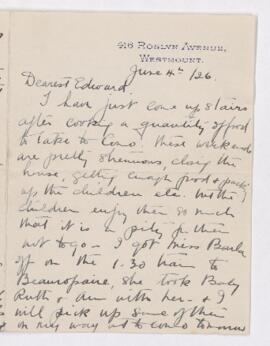 416 ROSLYN AVENUE,
WESTMOUNT.
June 4th /26.
Dearest Edward
I have just come up stairs
after cooking a quantity of food
to take to Como, these week ends
are pretty strenuous, closing the
house, getting enough food & packing
up the children etc. but the
children enjoy them so much
that it is a pity for them
not to go - I got Miss
off on the 1-30 train to
Beaurepaire, she took Baby
Ruth & Ann with her - & I
will pick up some of them
on my way out to Como tomorrow